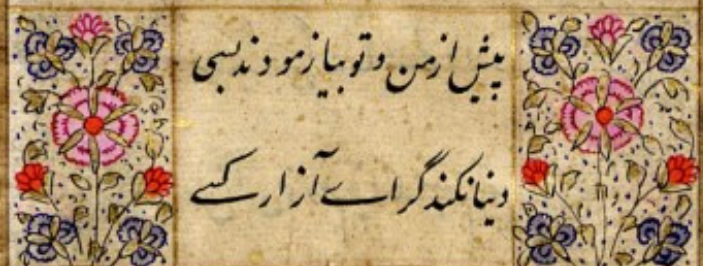 پیش از من و تو بیازمودند بسی
دینا نکند گرای آزار کسے